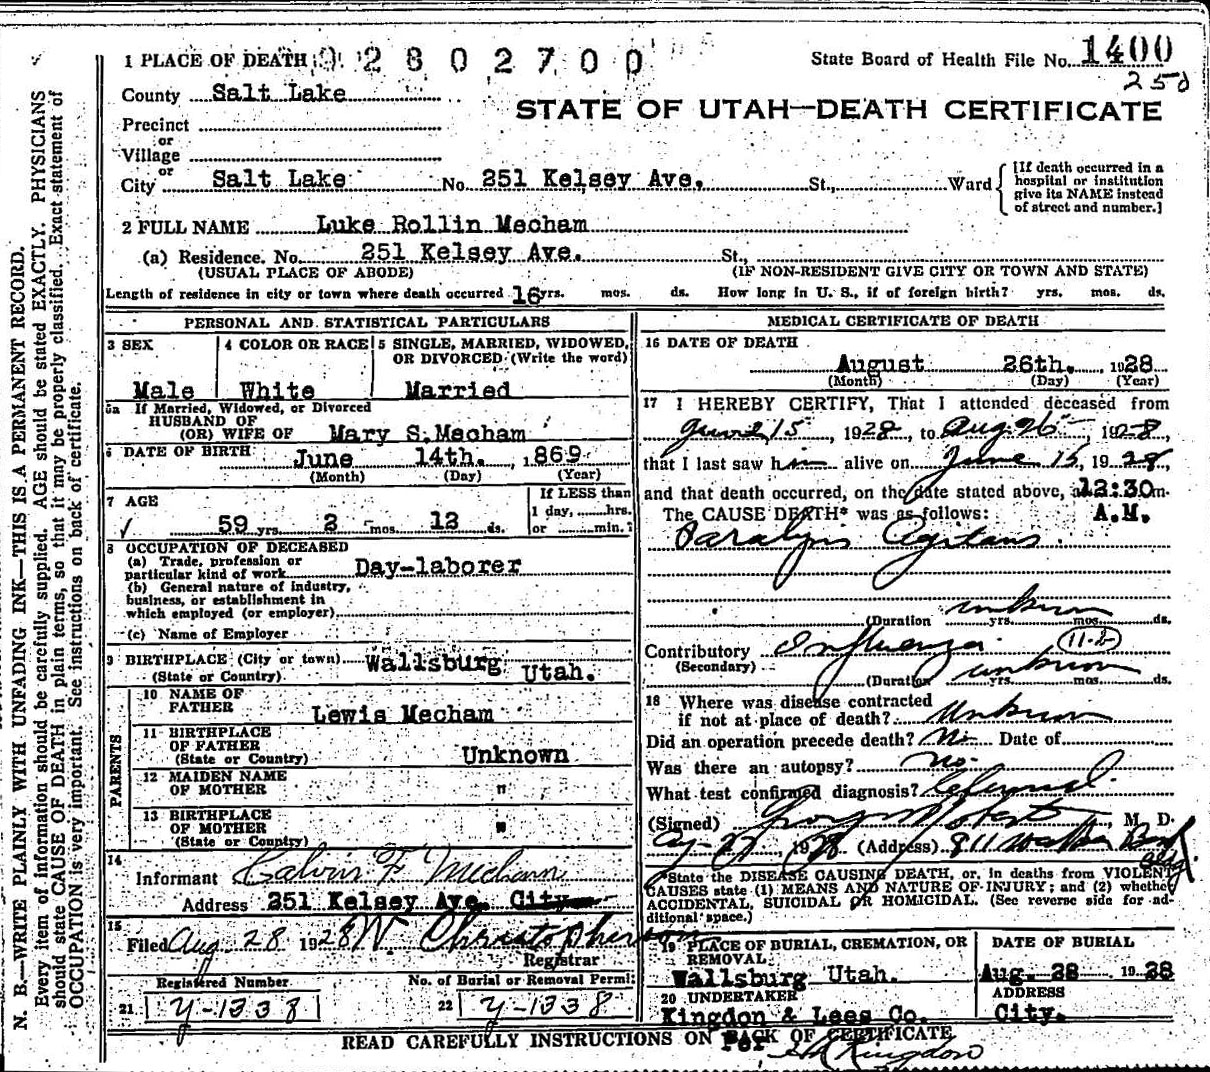 1 PLACE OF DEATH 2 8 0 2 7 0 0
State Board of Health File No. 1400
250
County Salt Lake
STATE OF UTAH—DEATH CERTIFICATE
Precinct
or
Village
or
City Salt Lake No. 251 Kelsey Ave. St., Ward
[If death occurred in a
hospital or institution
give its NAME instead
of street and number.]
2 FULL NAME Luke Rollin Mecham
(a) Residence. No. 251 Kelsey Ave. St.,
(USUAL PLACE OF ABODE) (IF NON-RESIDENT GIVE CITY OR TOWN AND STATE)
Length of residence in city or town where death occurred 16 yrs. mos. ds. How long in U. S., if of foreign birth? yrs. mos. ds.
PERSONAL AND STATISTICAL PARTICULARS
3 SEX 4 COLOR OR RACE 5 SINGLE, MARRIED, WIDOWED,
OR DIVORCED (Write the word)
Male White Married
5a If Married, Widowed, or Divorced
HUSBAND OF
(OR) WIFE OF Mary S. Mecham
6 DATE OF BIRTH June 14th. , 1869
(Month) (Day) (Year)
7 AGE If LESS than
1 day, hrs.
59 yrs. 2 mos. 12 ds. or min.?
8 OCCUPATION OF DECEASED
(a) Trade, profession or
particular kind of work Day-laborer
(b) General nature of industry,
business, or establishment in
which employed (or employer)
(c) Name of Employer
9 BIRTHPLACE (City or town) Wallsburg
(State or Country) Utah.
PARENTS
10 NAME OF
FATHER Lewis Mecham
11 BIRTHPLACE
OF FATHER
(State or Country) Unknown
12 MAIDEN NAME
OF MOTHER "
13 BIRTHPLACE
OF MOTHER "
(State or Country)
14
Informant Calvin F Mecham
Address 251 Kelsey Ave. City
15
Filed Aug 28 1928 W Christopherson
Registrar
Registered Number No. of Burial or Removal Permit
21 Y-1338 22 Y-1338
MEDICAL CERTIFICATE OF DEATH
16 DATE OF DEATH
August 26th. , 1928
(Month) (Day) (Year)
17 I HEREBY CERTIFY, That I attended deceased from
June 15 , 1928, to Aug 26 , 1928,
that I last saw him alive on June 15, 1928,
and that death occurred, on the date stated above, at 12:30 m.
The CAUSE DEATH* was as follows: A.M.
Paralysis Agitans.
unknown
(Duration yrs. mos. ds.
Contributory Influenza 11-B
(Secondary) unknown
(Duration yrs. mos. ds.
18 Where was disease contracted
if not at place of death? Unknown
Did an operation precede death? No Date of
Was there an autopsy? No.
What test confirmed diagnosis? Clinical
(Signed) , M. D.
Aug 27, 1928 (Address) 811 Walker Bank
Bldg.
State the DISEASE CAUSING DEATH, or, in deaths from VIOLENT
CAUSES state (1) MEANS AND NATURE OF INJURY; and (2) whether
ACCIDENTAL, SUICIDAL OR HOMICIDAL. (See reverse side for ad-
ditional space.)
19 PLACE OF BURIAL, CREMATION, OR
REMOVAL DATE OF BURIAL
Wallsburg Utah. Aug. 28 1928
20 UNDERTAKER ADDRESS
Kingdon & Lees Co. City.
READ CAREFULLY INSTRUCTIONS ON BACK OF CERTIFICATE
Per Kingdon
N. B.—WRITE PLAINLY WITH UNFADING INK—THIS IS A PERMANENT RECORD.
Every item of information should be carefully supplied. AGE should be stated EXACTLY. PHYSICIANS
should state CAUSE OF DEATH in plain terms, so that it may be properly classified. Exact statement of
OCCUPATION is very important. See instructions on back of certificate.